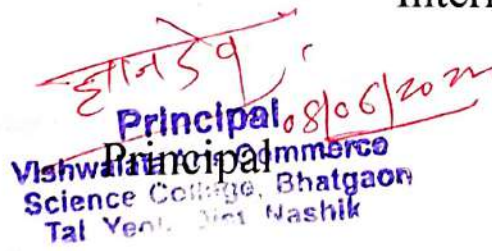 Inter
ज्ञानदेव
08/06/2022
Principal
Principal
Vishwalata Arts Commerce
Science College, Bhatgaon
Tal Yeola Dist Nashik